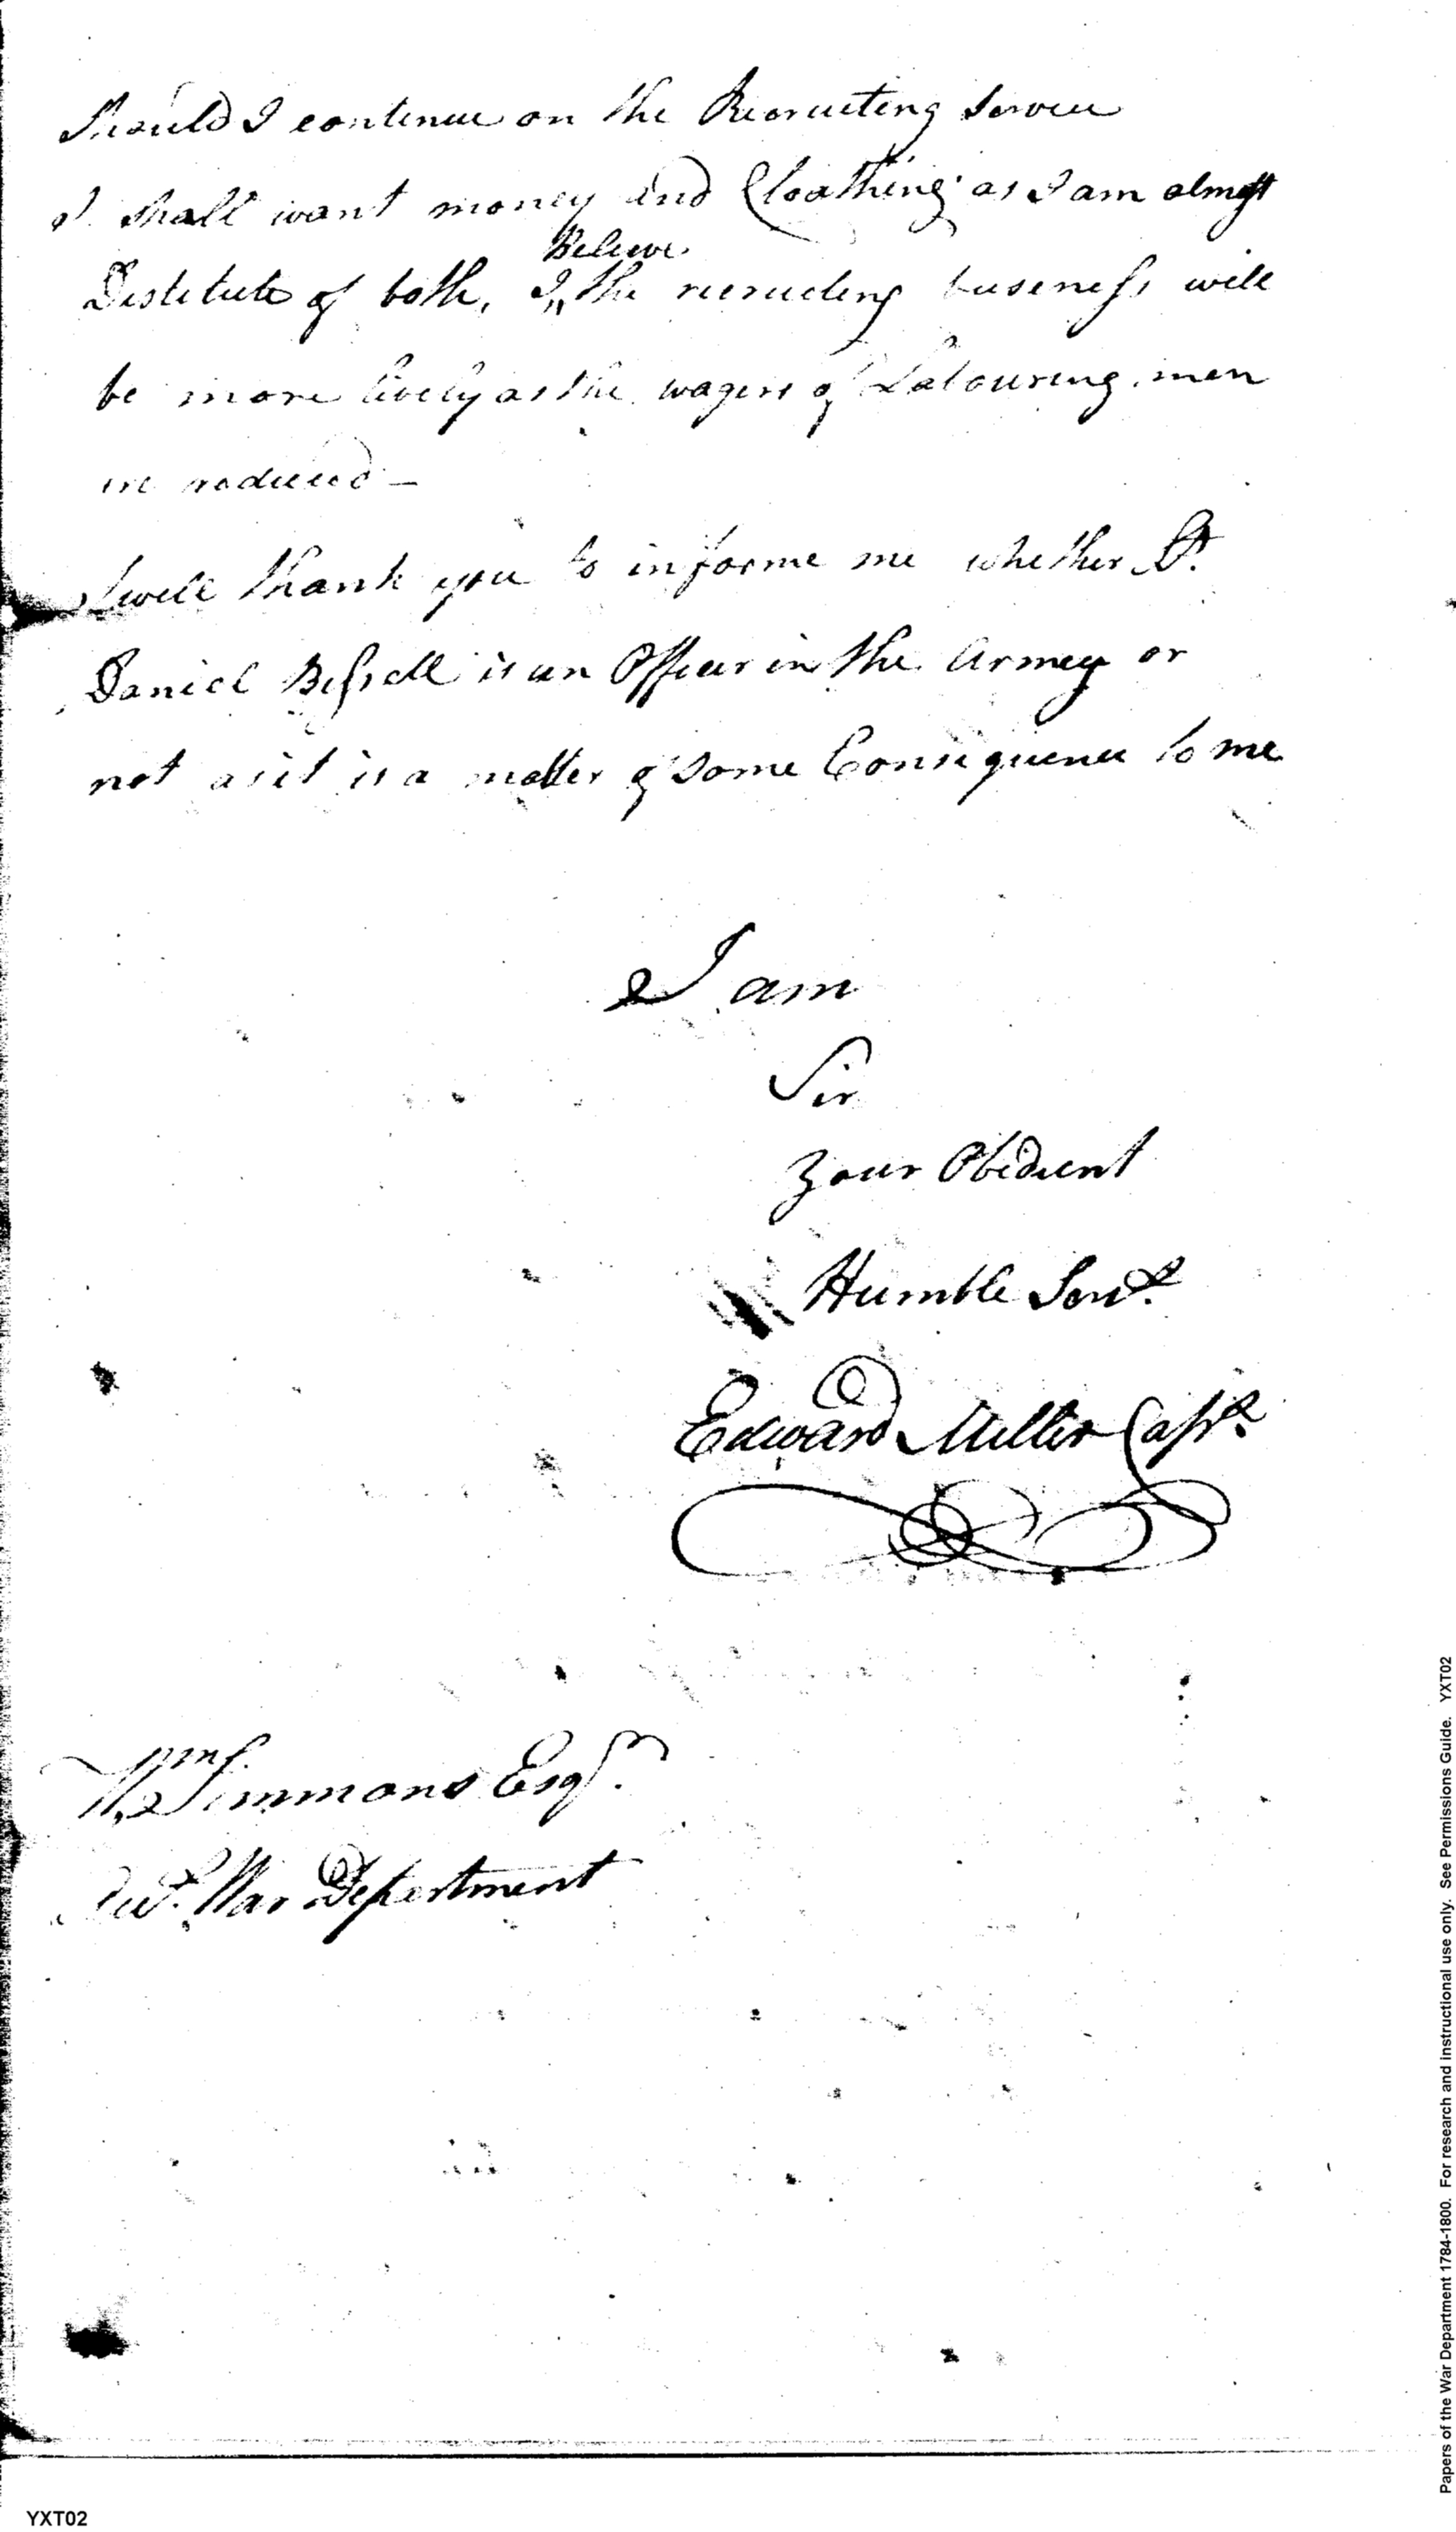 Should I continue on the Recruiting Service
I shall want money and Cloathing as I am almost
Destitute of both, I Believe the recruiting business will
be more lively as the wagers of Labouring men
are reduced —
I will thank you to informe me whether Lt.
Daniel Bissell is an Officer in the Armey or
not as it is a matter of some Consequence to me
I am
Sir
Your Obedient
Humble Servt.
Edward Miller Capt.
Wm Simmons Esqr.
War Department
Papers of the War Department 1784-1800. For research and instructional use only. See Permissions Guide. YXT02
YXT02